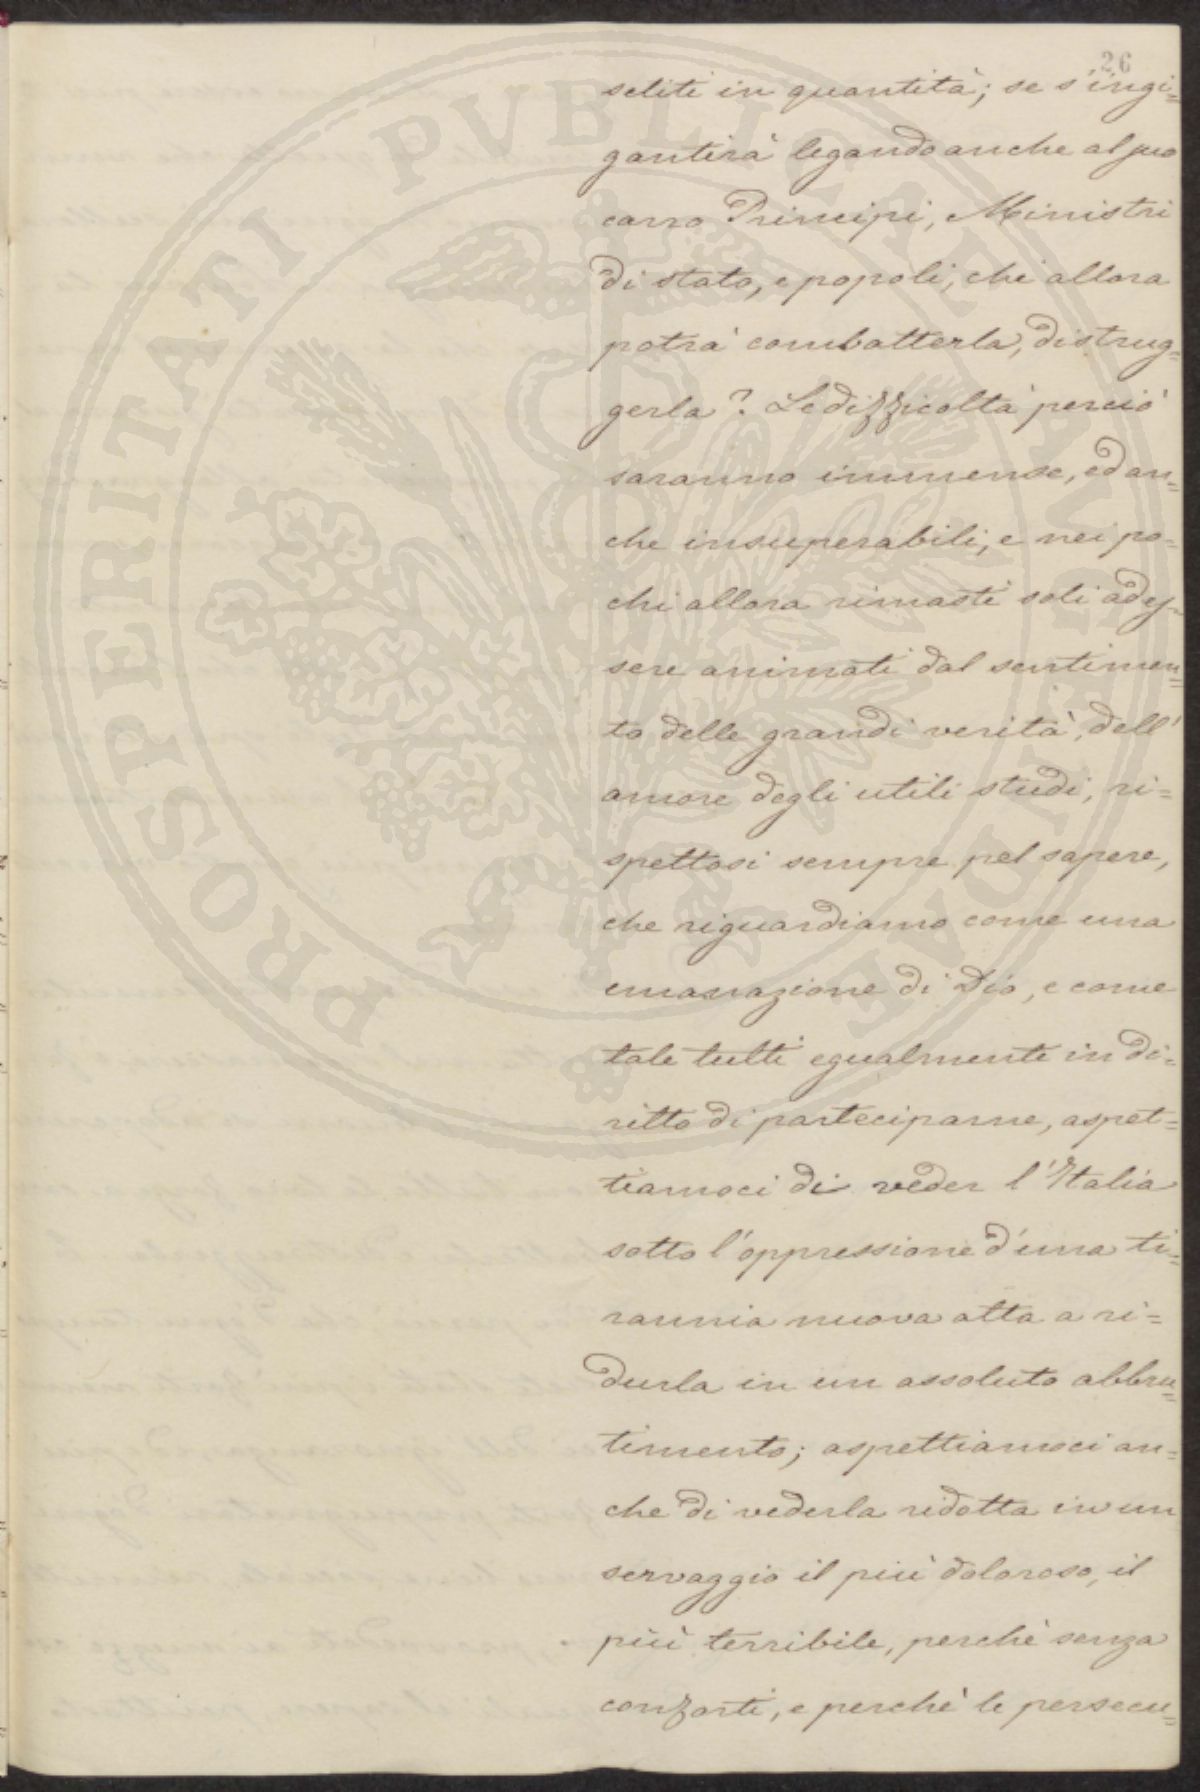 26
seliti in quantità; se s'ingi=
gantirà legando anche al suo
carro Principi, Ministri
di stato, e popoli, chi allora
potrà combatterla, distrug=
gerla? Le difficoltà perciò
saranno immense, ed an=
che insuperabili, e nei po=
chi allora rimasti soli ad es=
sere animati dal sentimen=
to delle grandi verità, dell'
amore degli utili studi, ri=
spettosi sempre pel sapere,
che riguardiamo come una
emanazione di Dio, e come
tale tutti egualmente in di=
ritto di parteciparne, aspet=
tiamoci di veder l'Italia
sotto l'oppressione d'una ti=
rannia nuova atta a ri=
durla in un assoluto abbru=
timento; aspettiamoci an=
che di vederla ridotta in un
servaggio il più doloroso, il
più terribile, perchè senza
conforti, e perchè le persecu=
PROSPERITATI PVBLICAE AVGENDAE